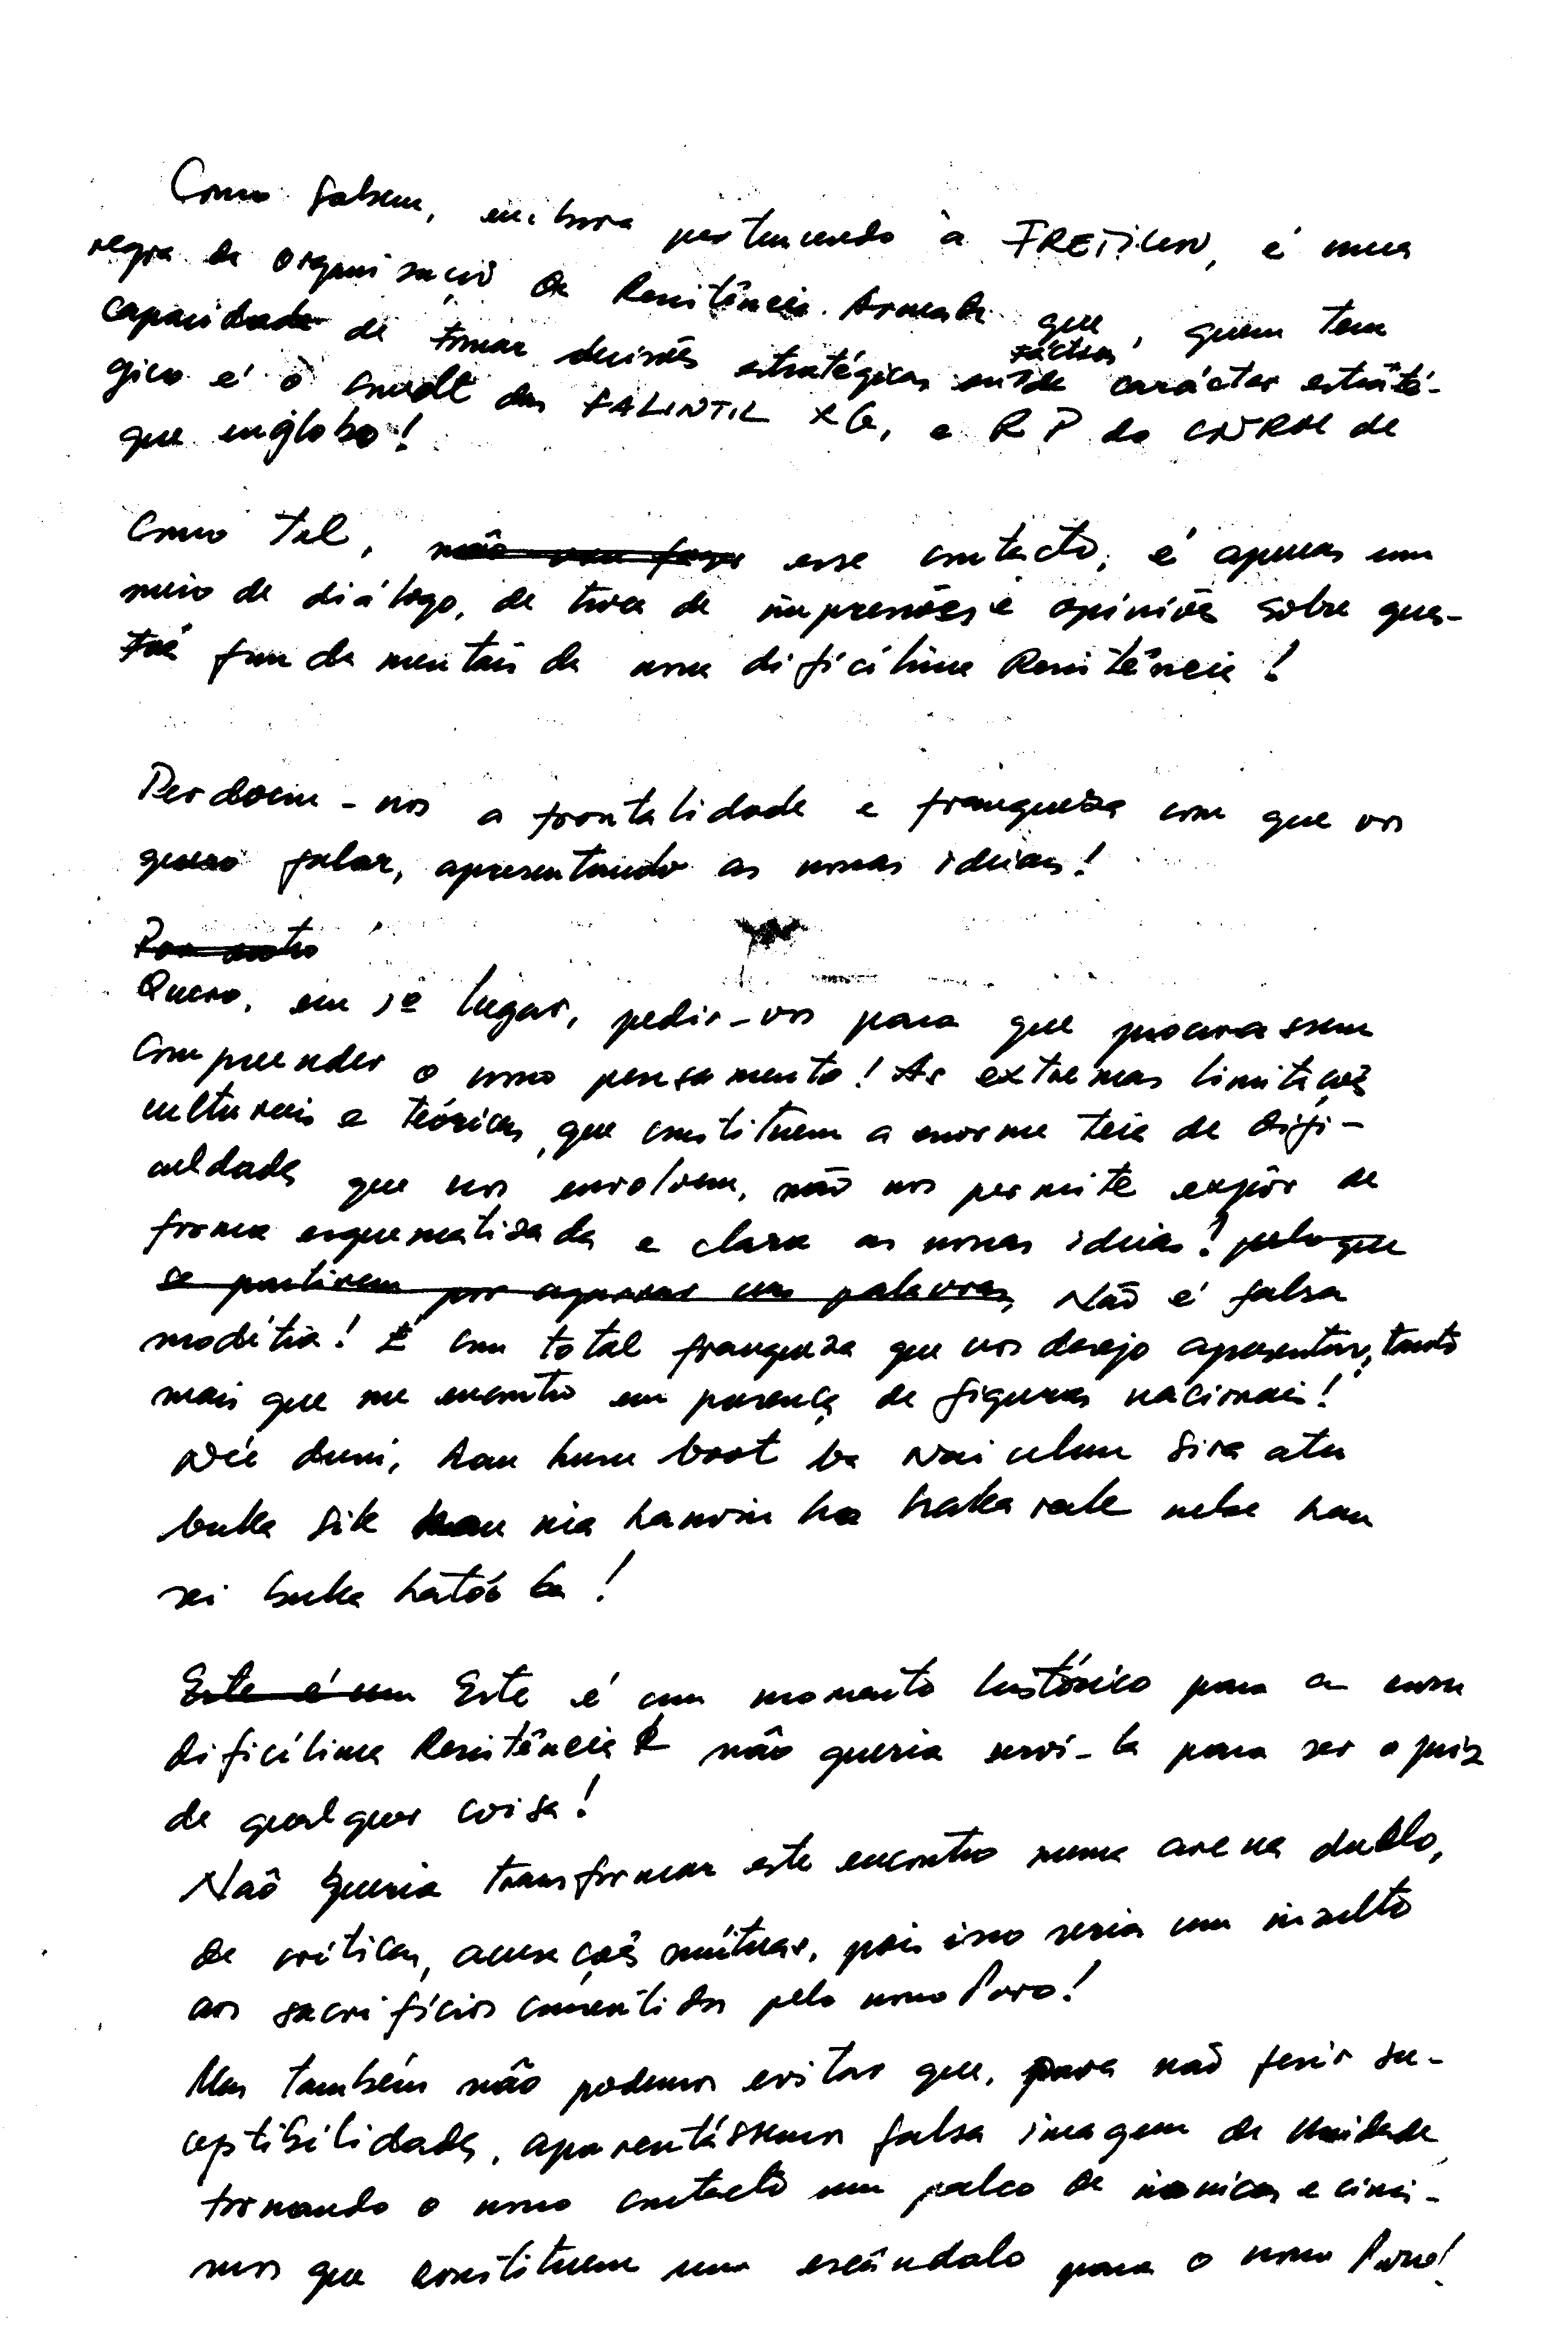 Como sabem, embora pertencendo à FRETILIN, é uma
regra de organização da Resistência Armada que, quem tem
capacidade de tomar decisões estratégicas ou de carácter estraté-
tácticas
gico é o cmdt das FALINTIL XG, e RP do CNRM de
que englobo!
Como tal, não vou fazer esse contacto, é apenas um
meio de diálogo, de troca de impressões e opiniões sobre ques-
tões fundamentais da nossa dificílima Resistência!
Perdoem-nos a frontalidade e franqueza com que vos
quero falar, apresentando as nossas ideias!
Por outro
Quero, em 1º lugar, pedir-vos para que procurassem
compreender o nosso pensamento! As extremas limitações
culturais e teóricas, que constituem a enorme teia de difi-
culdades que nos envolvem, não nos permite expôr de
forma esquematizada e clara as nossas ideias! pelo que
se partirem por agarrar nas palavras, Não é falsa
modéstia! É com total franqueza que vos desejo apresentar, tanto
mais que me encontro em presença de figuras nacionais!
Né'e duni, hau husu boot ba Nai ulun sira atu
buka sik hau nia hanoin ho hakarak nebe hau
sei buka hatóo ba!
Este é um Este é um momento histórico para a nossa
dificílima Resistência E não queria servi-la para ser o juiz
de qualquer coisa!
Não queria transformar este encontro numa arena duelo,
de críticas, acusações mútuas, pois isso seria um insulto
aos sacrifícios consentidos pelo nosso Povo!
Mas também não podemos evitar que, para não ferir su-
ceptibilidades, aparentássemos falsa imagem de Unidade
tornando o nosso contacto um palco de ironicas e cinis-
mos que constituem um escândalo para o nosso Povo!